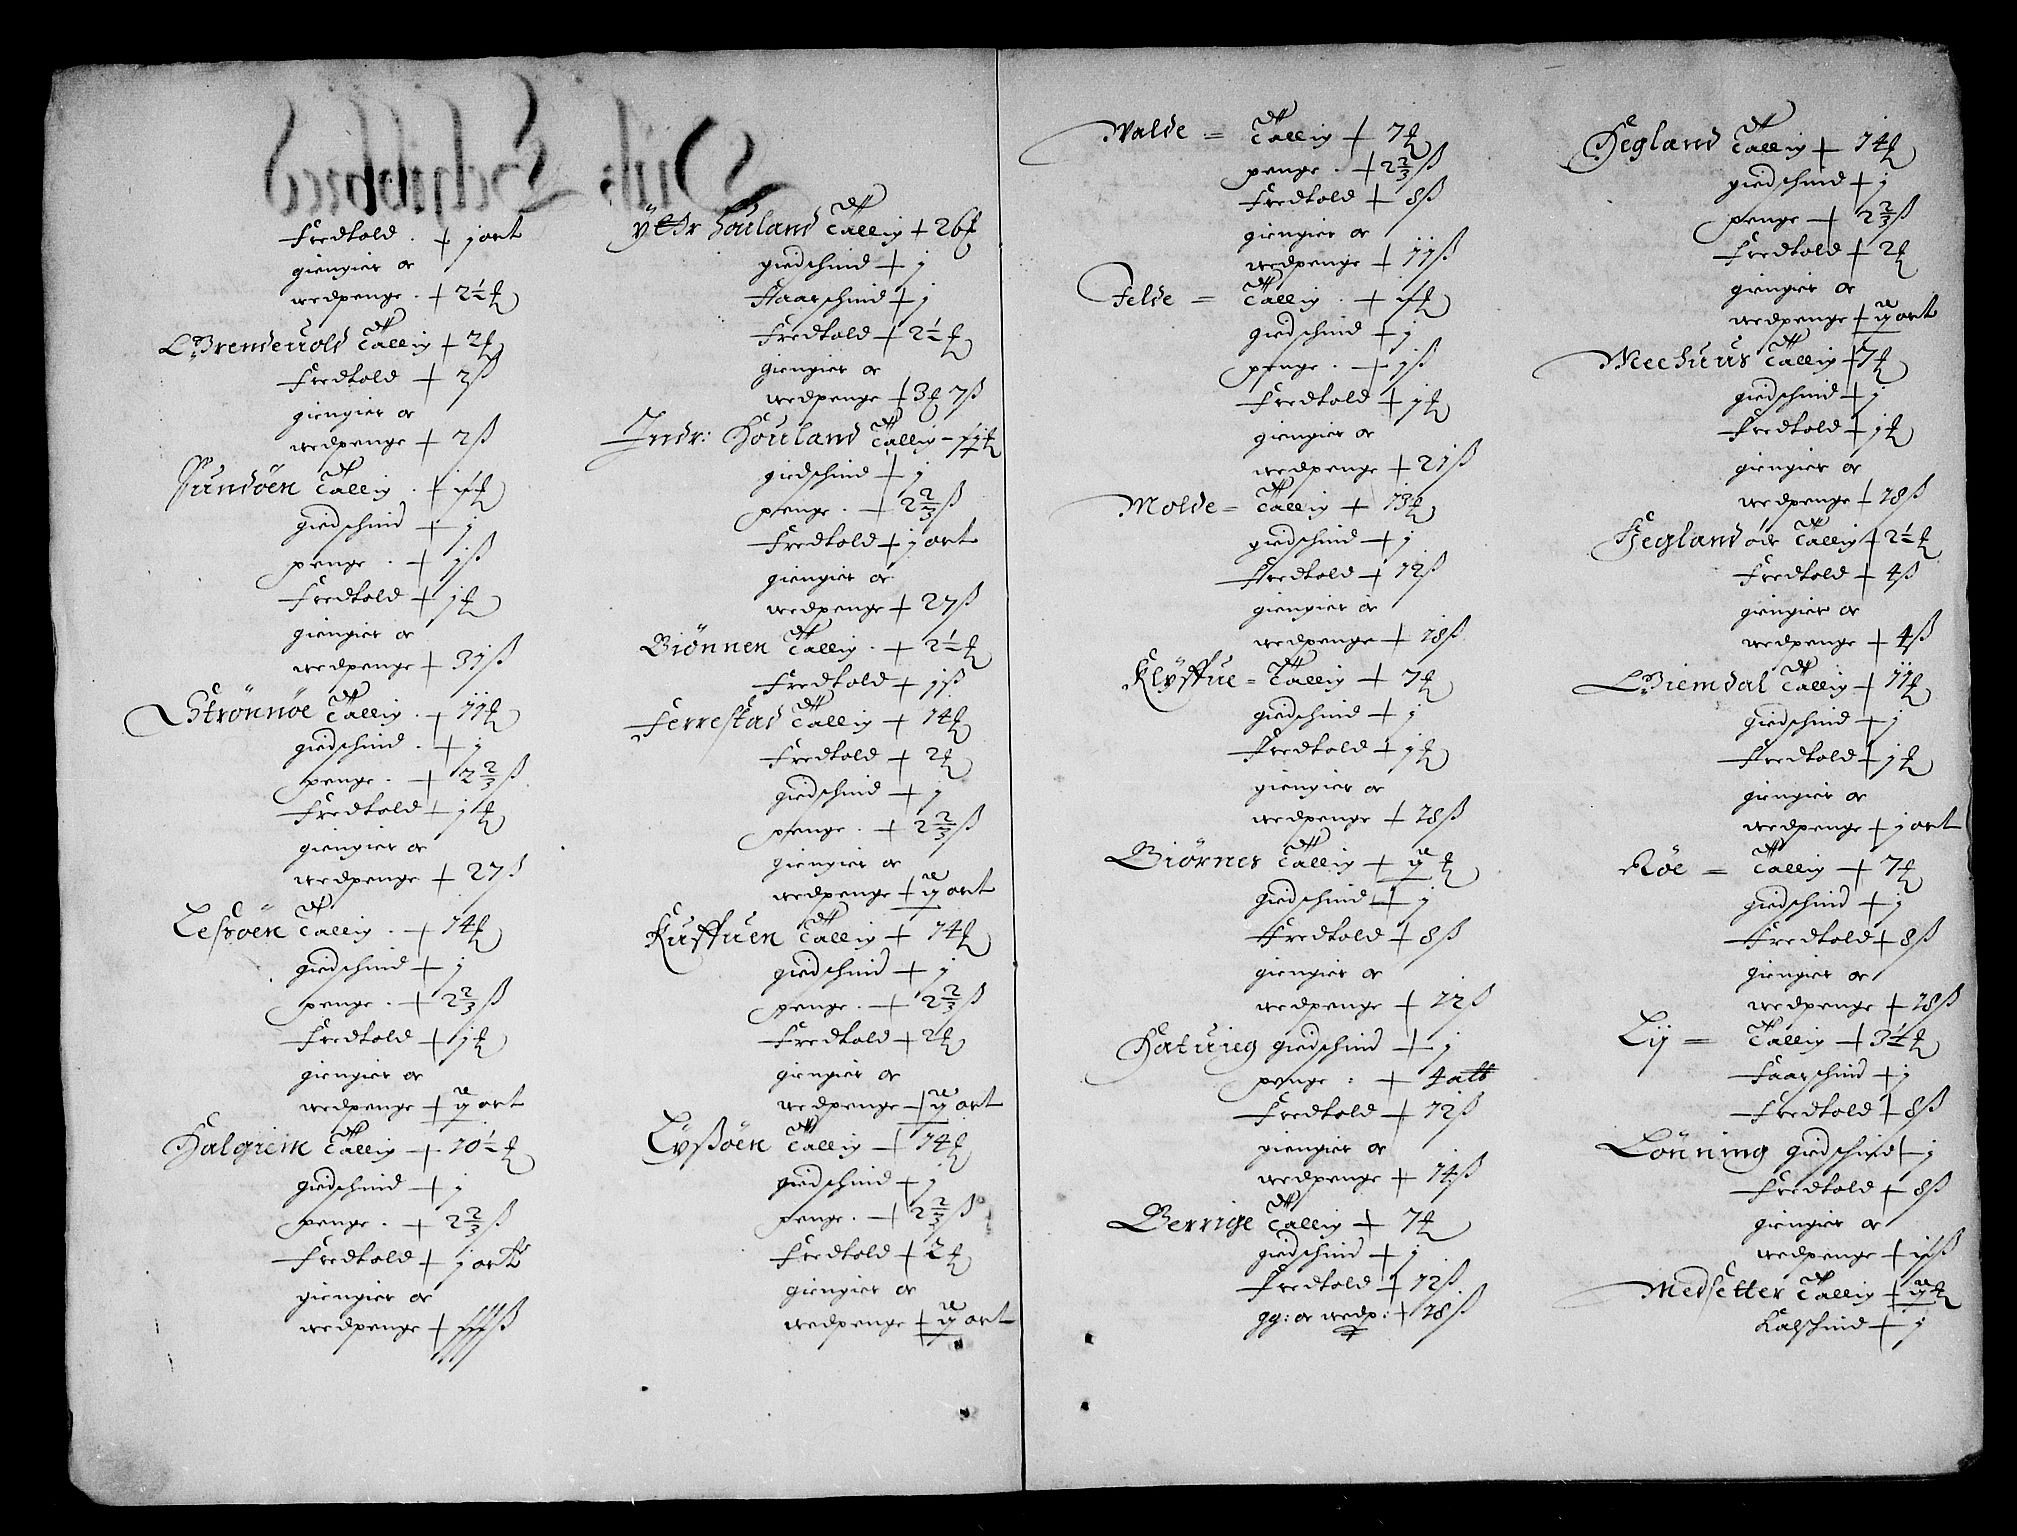 Fredtold . + j ort
giengier or
wedpenge . + 2½
Brendeuold Tallig + 2
Fredtold + 2ß
giengier or
wedpenge + 2ß
Sundöen Tallig . +
giedschind + j
penge . + jß
Fredtold + j
giengier or
wedpenge + 31ß
Strönnöe Tallig . + 11
giedschind . + j
penge . + 2⅔ß
Fredtold + j
giengier or
wedpenge + 27ß
Lesöen Tallig . + 14
giedschind + j
penge . + 2⅔ß
Fredtold + j
giengier or
wedpenge + ij ort
Halgiem Tallig + 10½
giedschind + j
penge . + 2⅔ß
Fredtold + j ort
giengier or
wedpenge +
ytter Houland Tallig + 26
giedschind + j
Faarschind + j
Fredtold + 2½
giengier or
wedpenge + 3 7ß
Indr: Houland Tallig
giedschind + j
penge . + 2⅔ß
Fredtold + j ort
giengier or
wedpenge + 27ß
Biönnen Tallig . + 2½
Fredtold + jß
Ferrestad Tallig + 14
Fredtold + 2
giedschind + j
penge . + 2⅔ß
giengier or
wedpenge + ij ort
Kuffuen Tallig + 14
giedschind + j
penge . + 2⅔ß
Fredtold + 2
giengier or
wedpenge + ij ort
Lyßöen Tallig + 14
giedschind + j
penge . + 2⅔ß
Fredtold + 2
giengier or
wedpenge + ij ort
Walde = Tallig + 7
penge . + 2⅔ß
Fredtold + 8ß
giengier or
wedpenge + 11ß
Felde = Tallig . +
giedschind + j
penge . + jß
Fredtold + j
giengier or
wedpenge + 21ß
Molde = Tallig + 13
giedschind + j
Fredtold + 12ß
giengier or
wedpenge + 18ß
Klyffue = Tallig + 7
giedschind + j
Fredtold + j
giengier or
wedpenge + 28ß
Biörnes Tallig + ij
giedschind + j
Fredtold + 8ß
giengier or
wedpenge + 12ß
Hatuieg giedschind + j
penge : + 4 alb
Fredtold + 12ß
giengier or
wedpenge + 14ß
Berrige Tallig + 7
giedschind + j
Fredtold + 12ß
gg: or wedp: + 28ß
Hegland Tallig + 14
giedschind + j
penge + 2⅔ß
Fredtold + 2
giengier or
wedpenge + ij ort
Mechuus Tallig + 7
giedschind + j
Fredtold + j
giengier or
wedpenge + 18ß
Hegland öde Tallig + 2½
Fredtold + 4ß
giengier or
wedpenge + 4ß
Giemdal Tallig + 11
giedschind + j
Fredtold + j
giengier or
wedpenge + j ort
Röe = Tallig + 7
giedschind + j
Fredtold + 8ß
giengier or
wedpenge + 18ß
Lij = Tallig + 3½
Faarschind + j
Fredtold + 8ß
Lönning giedschind + j
Fredtold + 8ß
giengier or
wedpenge +
Medsetter Tallig + ij
Kalschind + j